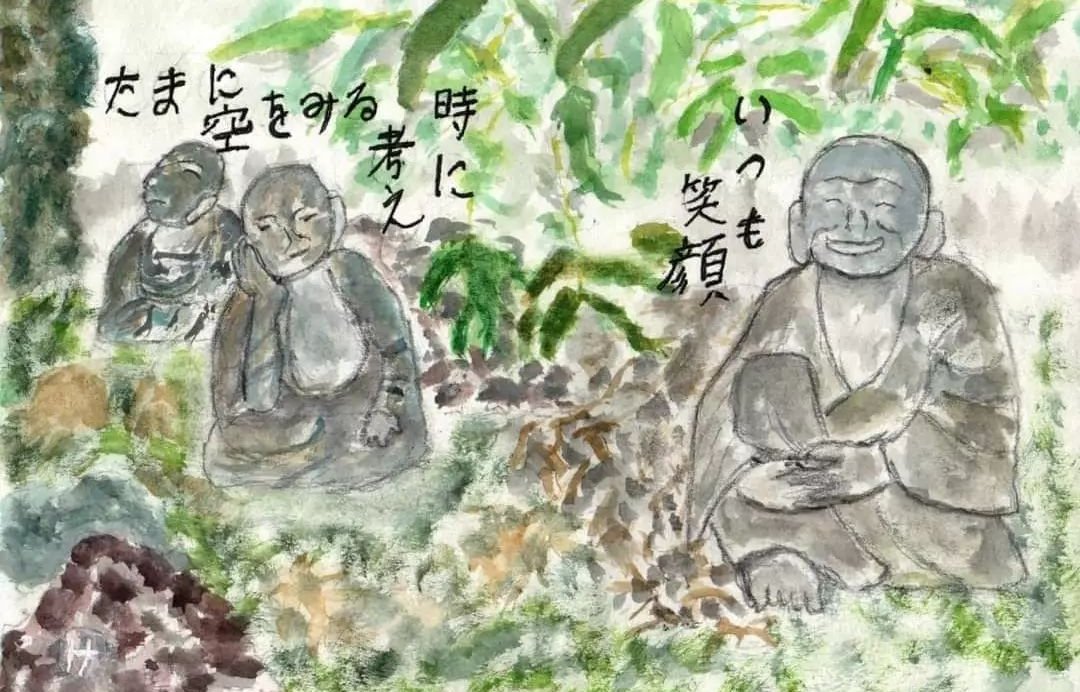 いつも
笑顔
時に
考え
たまに空をみる